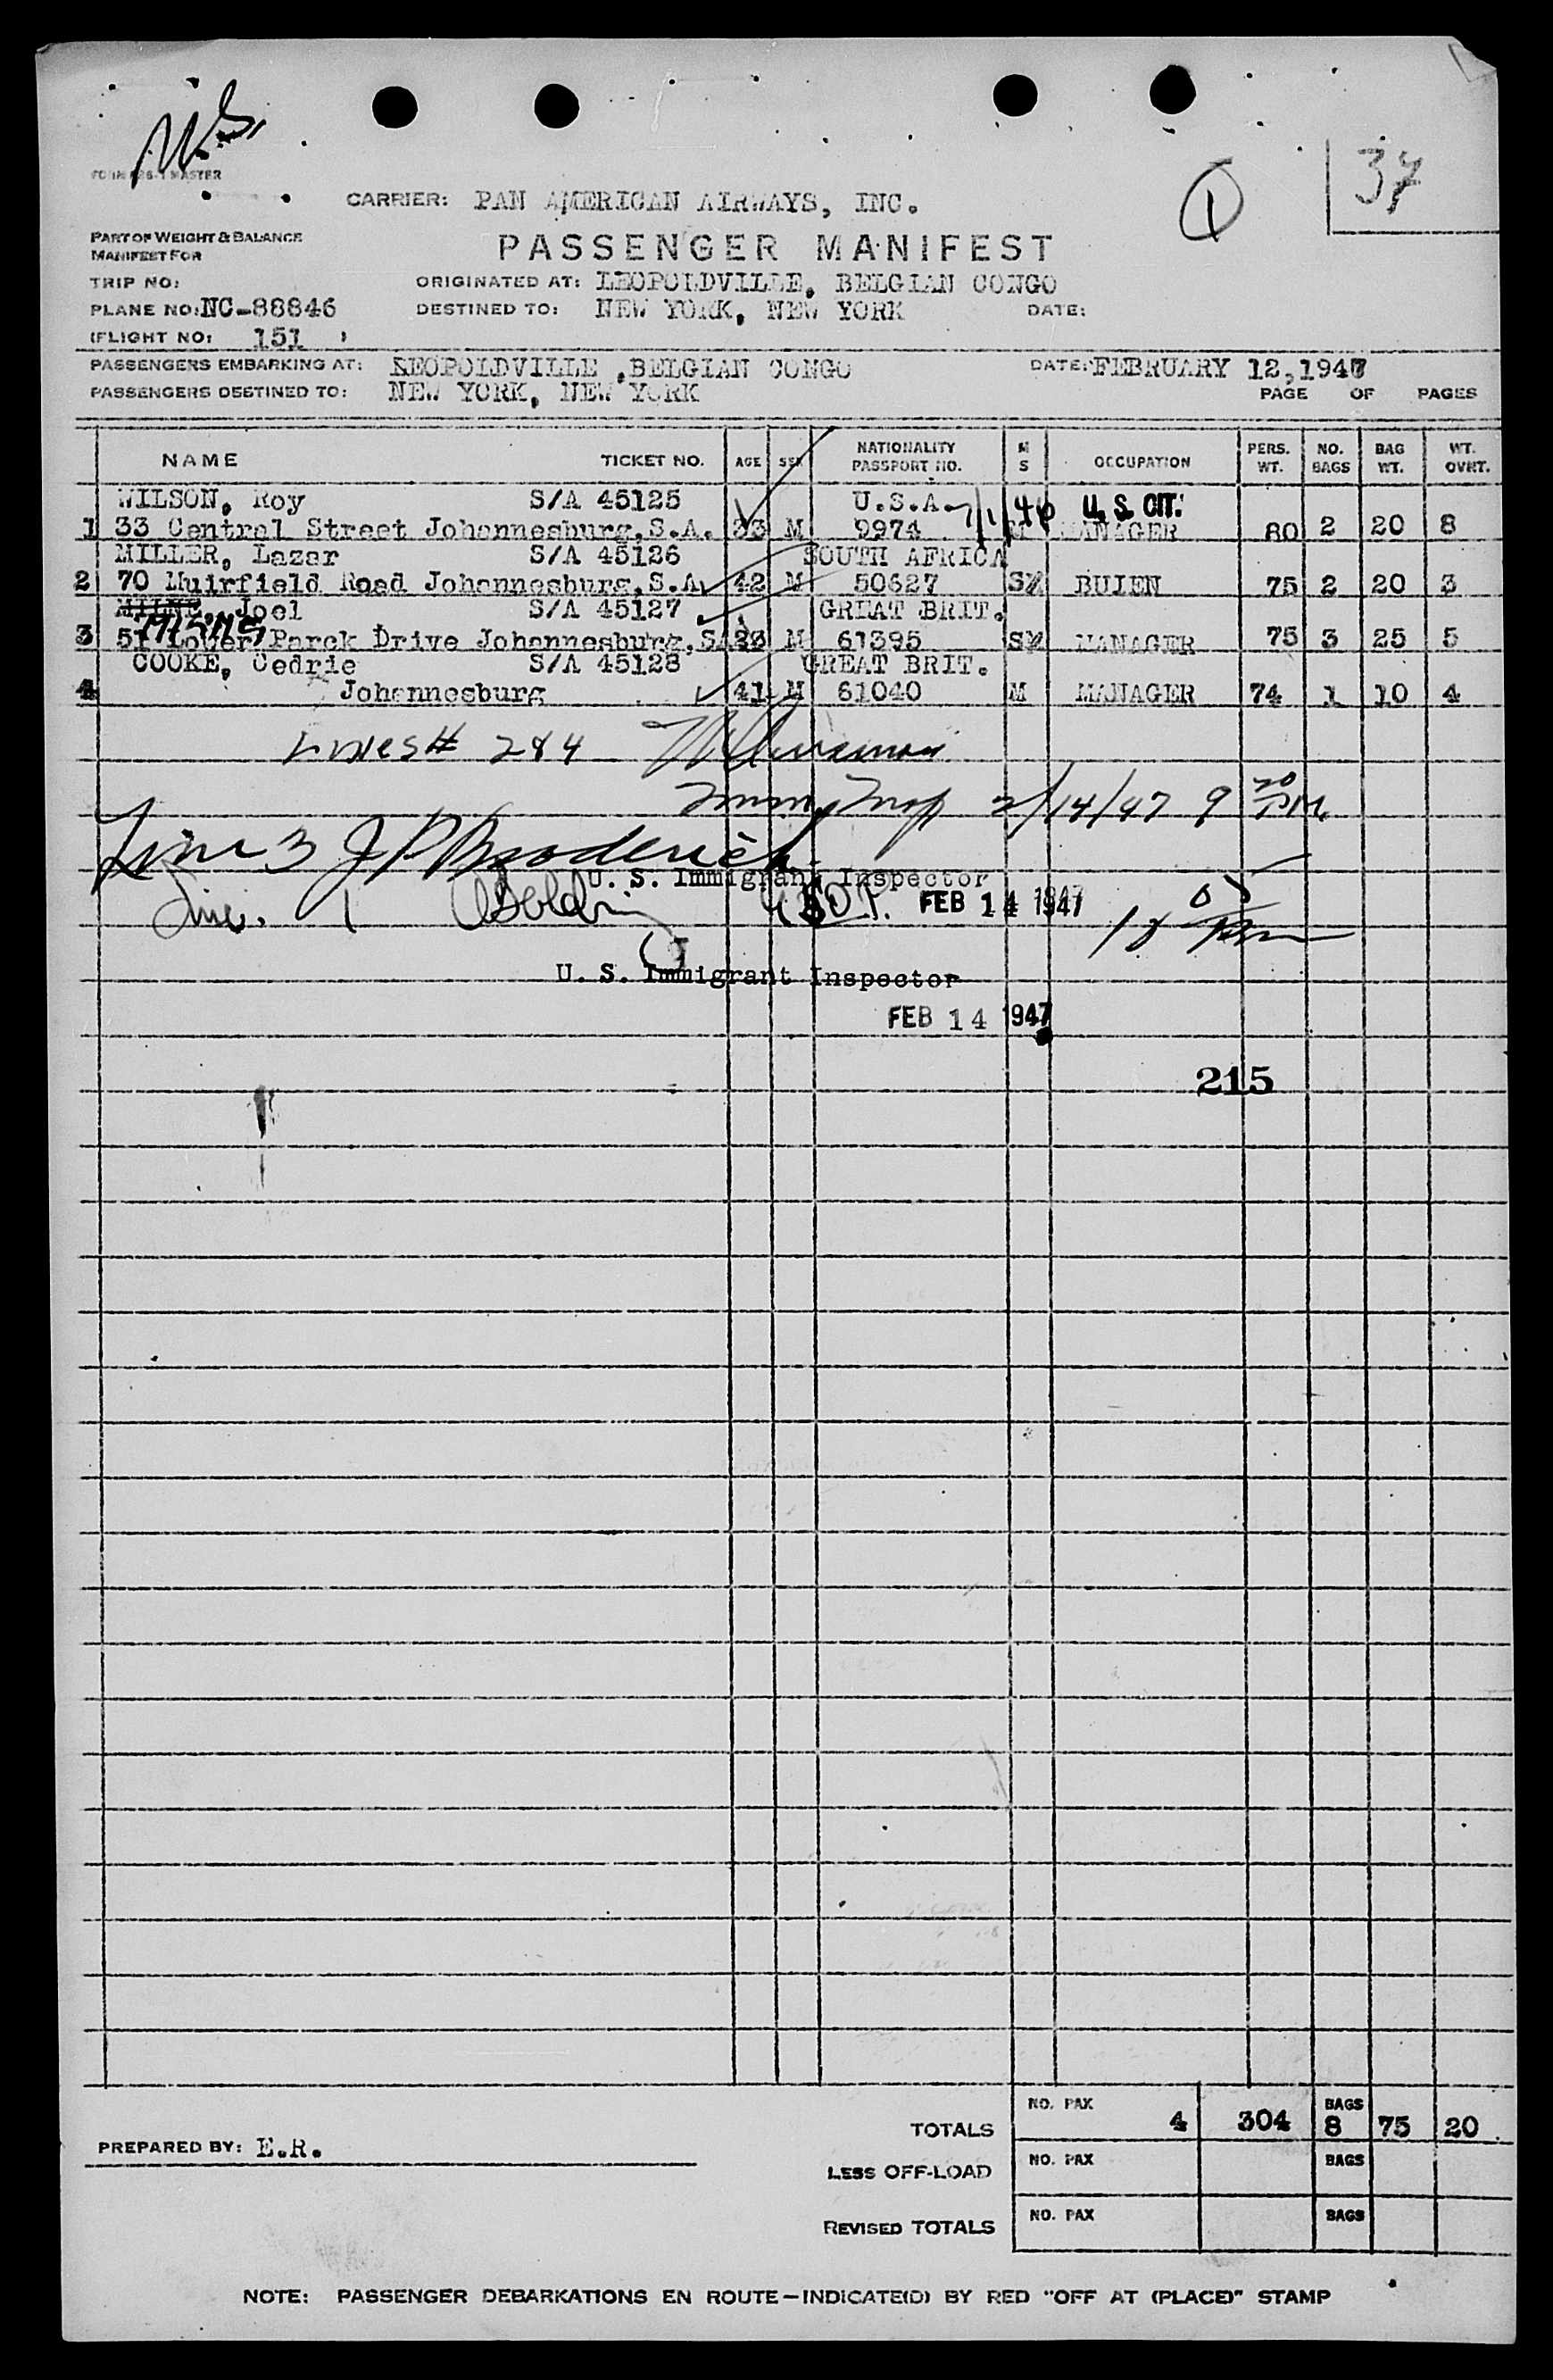 FORM MASTER
37
1
CARRIER: PAN AMERICAN AIRWAYS, INC.
PART OF WEIGHT & BALANCE
MANIFEST FOR
PASSENGER MANIFEST
TRIP NO:
ORIGINATED AT: LEOPOLDVILLE, BELGIAN CONGO
PLANE NO: NC-88846
DESTINED TO: NEW YORK, NEW YORK DATE:
(FLIGHT NO: 151 )
PASSENGERS EMBARKING AT: LEOPOLDVILLE ,BELGIAN CONGO DATE: FEBRUARY 12,1947
PASSENGERS DESTINED TO: NEW YORK, NEW YORK PAGE OF PAGES
NAME TICKET NO. AGE SEX NATIONALITY PASSPORT NO. M S OCCUPATION PERS. WT. NO. BAGS BAG WT. WT. OVNT.
WILSON, Roy S/A 45125 U.S.A. 7/1/46 U. S. CIT.
1 33 Central Street Johannesburg,S.A. 33 M 9974 M MANAGER 80 2 20 8
MILLER, Lazar S/A 45126 SOUTH AFRICA
2 70 Muirfield Road Johannesburg,S.A 42 M 50627 S BUIEN 75 2 20 3
Joel S/A 45127 GREAT BRIT.
3 51 Lower Parck Drive Johannesburg,SA 23 M 61395 S MANAGER 75 3 25 5
COOKE, Cedrie S/A 45128 GREAT BRIT.
4 Johannesburg 41 M 61040 M MANAGER 74 1 10 4
Lines # 2 & 4
Immig Insp 2/14/47 9 20 PM.
Line 3 J P Broderick
U. S. Immigrant Inspector
Line. 1 FEB 14 1947
U. S. Immigrant Inspector
FEB 14 1947
215
TOTALS NO. PAX 4 304 BAGS 8 75 20
PREPARED BY: E.R.
LESS OFF-LOAD NO. PAX BAGS
REVISED TOTALS NO. PAX BAGS
NOTE: PASSENGER DEBARKATIONS EN ROUTE—INDICATE(D) BY RED "OFF AT (PLACE)" STAMP